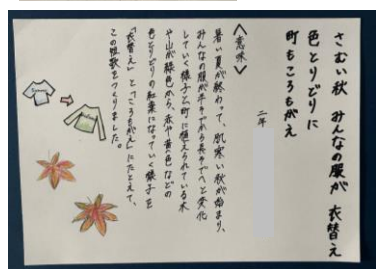 さむい秋 みんなの服が 衣替え
色とりどりに
町もころもがえ
二年
〈意味〉
暑い夏が終わって、肌寒い秋が始まり、
みんなの服が半そでから長そでへと変化
していく様子と町に植えられている木
や山が緑色から、赤や黄色などの
色とりどりの紅葉になっていく様子を
「衣替え」と「ころもがえ」にたとえて、
この短歌をつくりました。